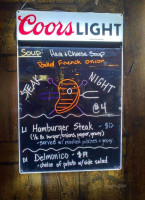 Coors LIGHT
Soup: Ham & Cheese Soup
Baked French Onion
STEAK NIGHT
@4
Hamburger Steak - $12
(½ lb burger, onions, gravy)
- Served w/ mashed potatoes + gravy
Delmonico - $19
- choice of potato w/ side salad